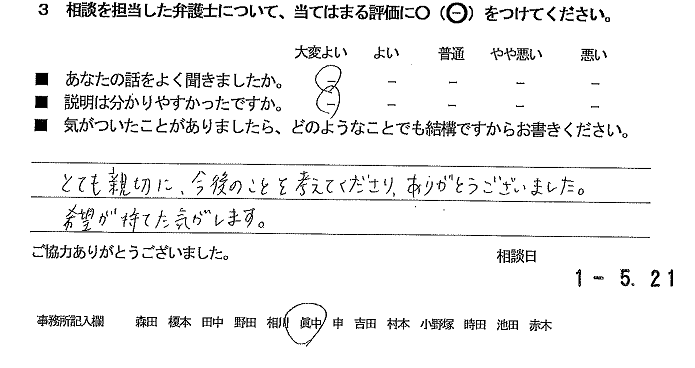 3 相談を担当した弁護士について、当てはまる評価に○（⊖）をつけてください。
大変よい よい 普通 やや悪い 悪い
■ あなたの話をよく聞きましたか。 － － － － －
■ 説明は分かりやすかったですか。 － － － － －
■ 気がついたことがありましたら、どのようなことでも結構ですからお書きください。
とても親切に、今後のことを考えてくださり、ありがとうございました。
希望が持てた気がします。
ご協力ありがとうございました。 相談日
1－5.21
事務所記入欄 森田 榎本 田中 野田 相川 眞中 申 吉田 村本 小野塚 時田 池田 赤木